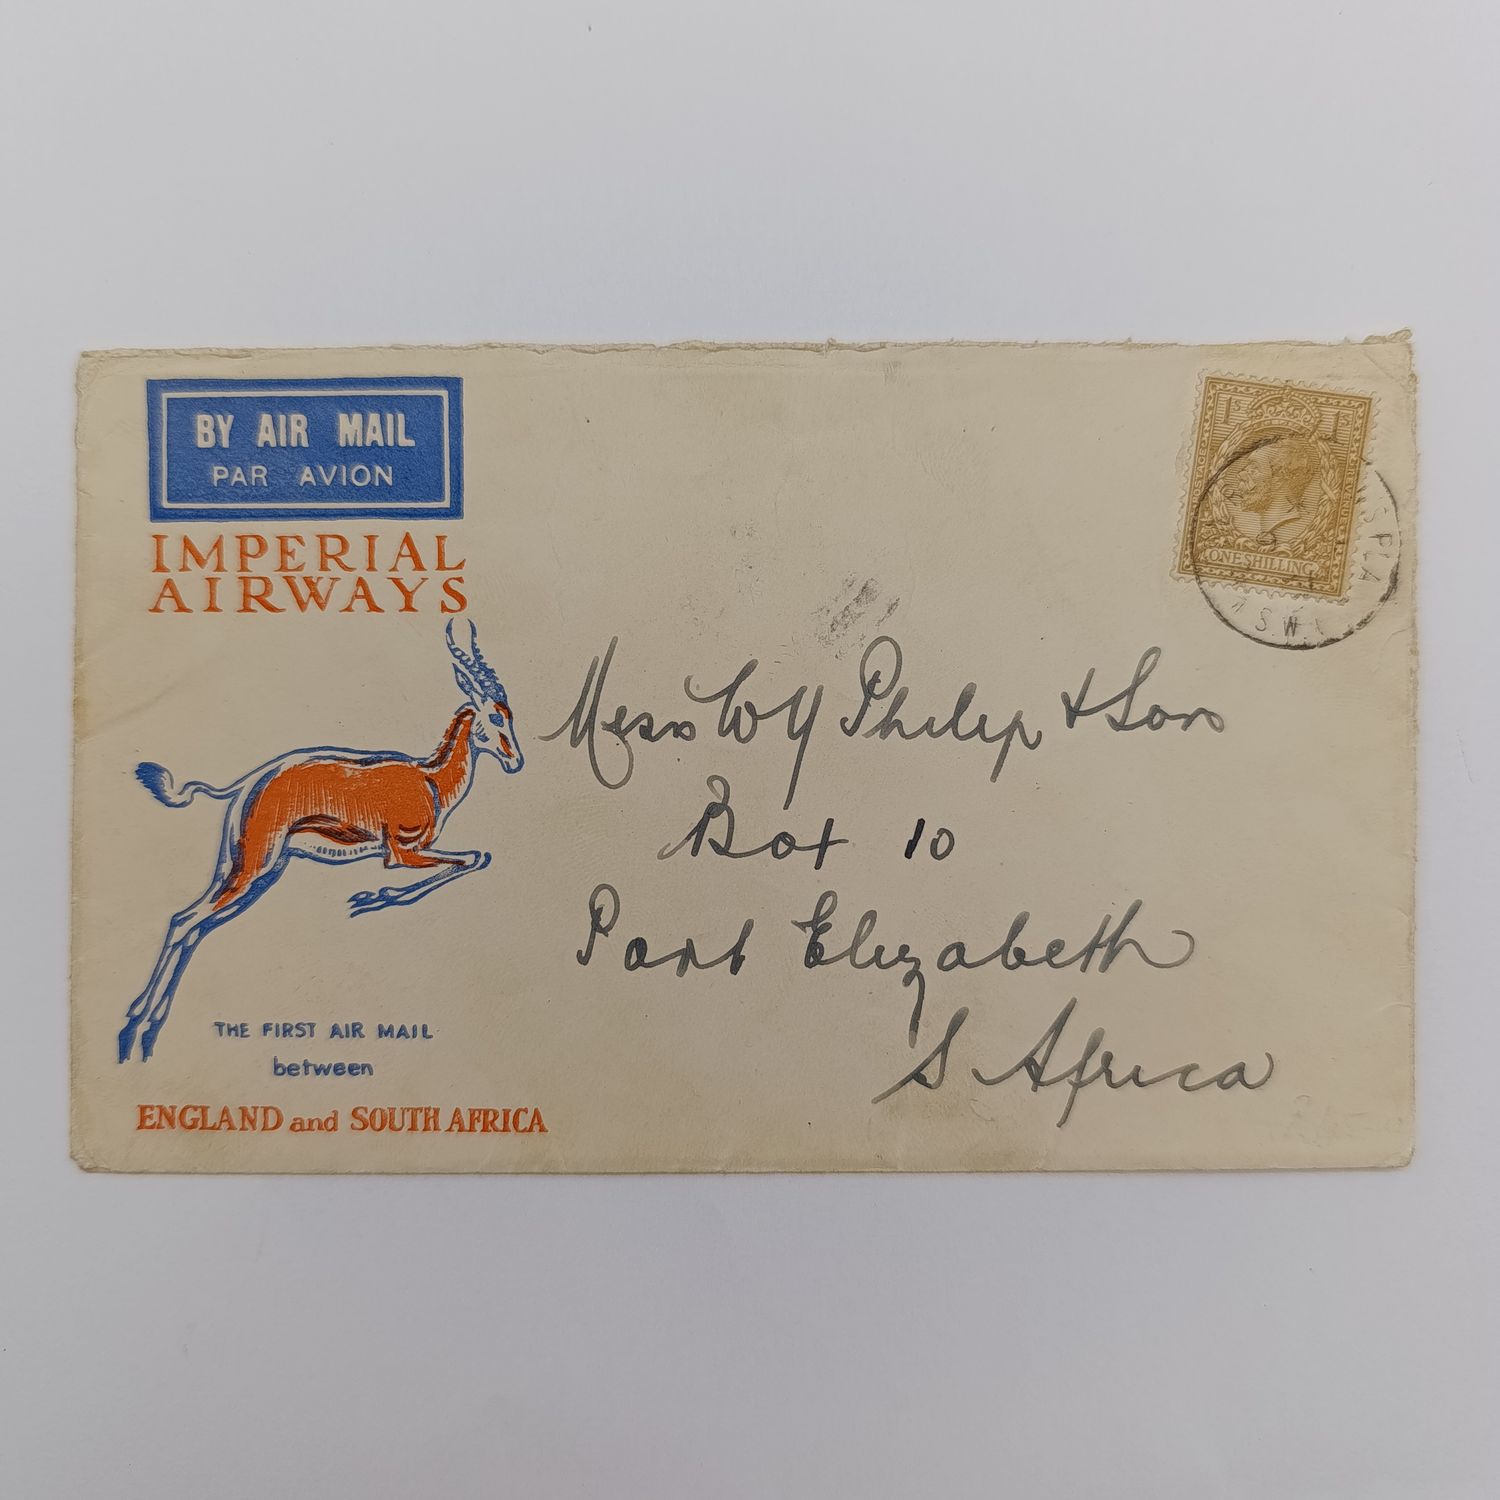 BY AIR MAIL
PAR AVION
IMPERIAL
AIRWAYS
THE FIRST AIR MAIL
between
ENGLAND and SOUTH AFRICA
1
ONE SHILLING
S.W.
Messrs W Y Philip & Son
Box 10
Port Elizabeth
S Africa